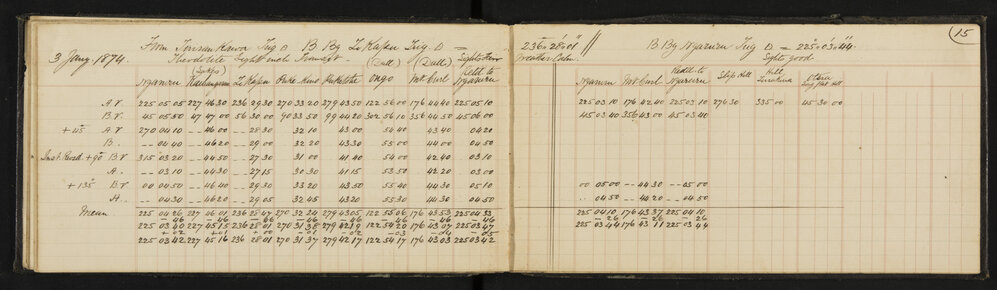 15
3 Jany. 1874. From Trig △ B. Bg Te Kapua Trig △ = 236° 28' 01" // B. Bg Ngaruru Trig △ = 225° 03' 44"
Theodolite Eight inch Transit Weather Calm. Sights good.
(Dull) (Dull)
Ngaruru Te Kapua Puke Ongo Mt Curl Refd. to Ngaruru Ngaruru Mt Curl Refd. to Ngaruru Ship Hill Hill
A.V. 225 05 05 227 46 30 236 29 30 270 33 20 279 43 50 122 56 00 176 44 40 225 05 10 225 03 10 176 42 40 225 03 10 276 30 335 00 45 30 00
B.V. 45 05 50 47 47 00 56 30 00 90 33 50 99 44 20 302 56 10 356 44 50 45 06 00 45 03 40 356 43 00 45 03 40
+45 A.V. 270 04 10 -- 46 00 -- 28 30 32 10 43 00 54 40 43 40 04 20
B.. -- 04 40 -- 46 20 -- 29 00 32 20 43 30 55 00 44 00 04 50
Inst. Revd. +90 B.V. 315 03 20 -- 44 50 -- 27 30 31 00 41 40 54 00 42 40 03 10
A.. -- 03 10 -- 44 30 -- 27 15 30 30 41 15 53 50 42 20 03 00
+135 B.V. 00 04 50 -- 46 40 -- 29 30 33 20 43 50 55 40 44 30 05 10 00 05 00 -- 44 30 -- 05 00
A.. 04 30 -- 46 20 -- 29 05 32 45 43 20 55 30 44 30 04 50 .. 04 50 -- 44 20 -- 04 50
Mean 225 04 26 227 46 01 236 28 47 270 32 24 279 43 05 122 55 06 176 43 53 225 04 33 225 04 10 176 43 37 225 04 10
-46 -46 -46 -46 -46 -46 -46 -46 -26 -26 -26
225 03 40 227 45 15 236 28 01 270 31 38 279 42 19 122 54 20 176 43 07 225 03 47 225 03 44 176 43 11 225 03 44
+02 +01 +00 -01 -02 -03 -04 -05
225 03 42 227 45 16 236 28 01 270 31 37 279 42 17 122 54 17 176 43 03 225 03 42